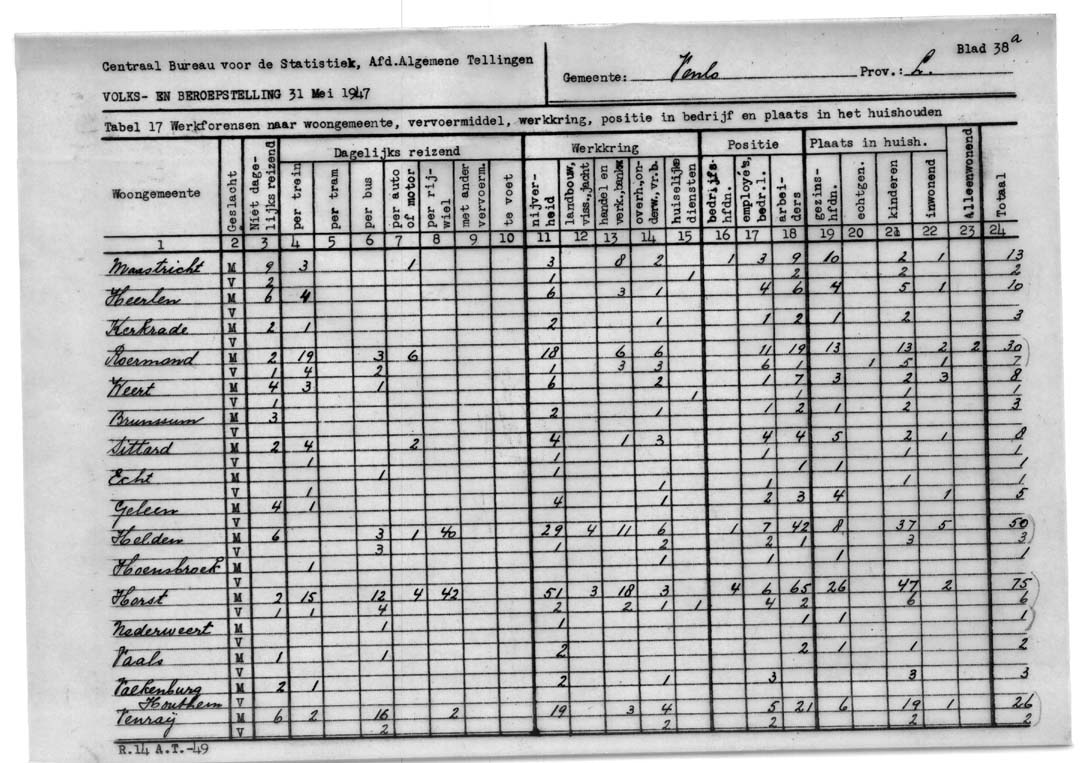 Blad 38a
Centraal Bureau voor de Statistiek, Afd.Algemene Tellingen
Gemeente: Venlo Prov.: L.
VOLKS- EN BEROEPSTELLING 31 Mei 1947
Tabel 17 Werkforensen naar woongemeente, vervoermiddel, werkkring, positie in bedrijf en plaats in het huishouden
Woongemeente Geslacht Niet dage-lijks reizend Dagelijks reizend Werkkring Positie Plaats in huish. Alleenwonend Totaal
per trein per tram per bus per auto of motor per rij-wiel met ander vervoerm. te voet nijver-heid landbouw, viss., jacht handel en verk., bankw overh., on-derw., vr.b. huiselijke diensten bedrijfs-hfdn. employé's, bedr.l. arbei-ders gezins-hfdn. echtgen. kinderen inwonend
1 2 3 4 5 6 7 8 9 10 11 12 13 14 15 16 17 18 19 20 21 22 23 24
Maastricht M 9 3 1 3 8 2 1 3 9 10 2 1 13
V 2 1 1 2 2 2
Heerlen M 6 4 6 3 1 4 6 4 5 1 10
V
Kerkrade M 2 1 2 1 1 2 1 2 3
V
Roermond M 2 19 3 6 18 6 6 11 19 13 13 2 2 30
V 1 4 2 1 3 3 6 1 1 5 1 7
Weert M 4 3 1 6 2 1 7 3 2 3 8
V 1 1 1 1 1
Brunssum M 3 2 1 1 2 1 2 3
V
Sittard M 2 4 2 4 1 3 4 4 5 2 1 8
V 1 1 1 1 1
Echt M 1 1 1 1 1
V 1 1 1 1 1
Geleen M 4 1 4 1 2 3 4 1 5
V
Helden M 6 3 1 40 29 4 11 6 1 7 42 8 37 5 50
V 3 1 2 2 1 3 3
Hoensbroek M 1 1 1 1 1
V
Horst M 2 15 12 4 42 51 3 18 3 4 6 65 26 47 2 75
V 1 1 4 2 2 1 1 4 2 6 6
Nederweert M 1 1 1 1 1
V
Vaals M 1 1 2 2 1 1 2
V
Valkenburg M 2 1 2 1 3 3 3
Houthem V
Venraij M 6 2 16 2 19 3 4 5 21 6 19 1 26
V 2 2 2 2 2
R.14 A.T.-49